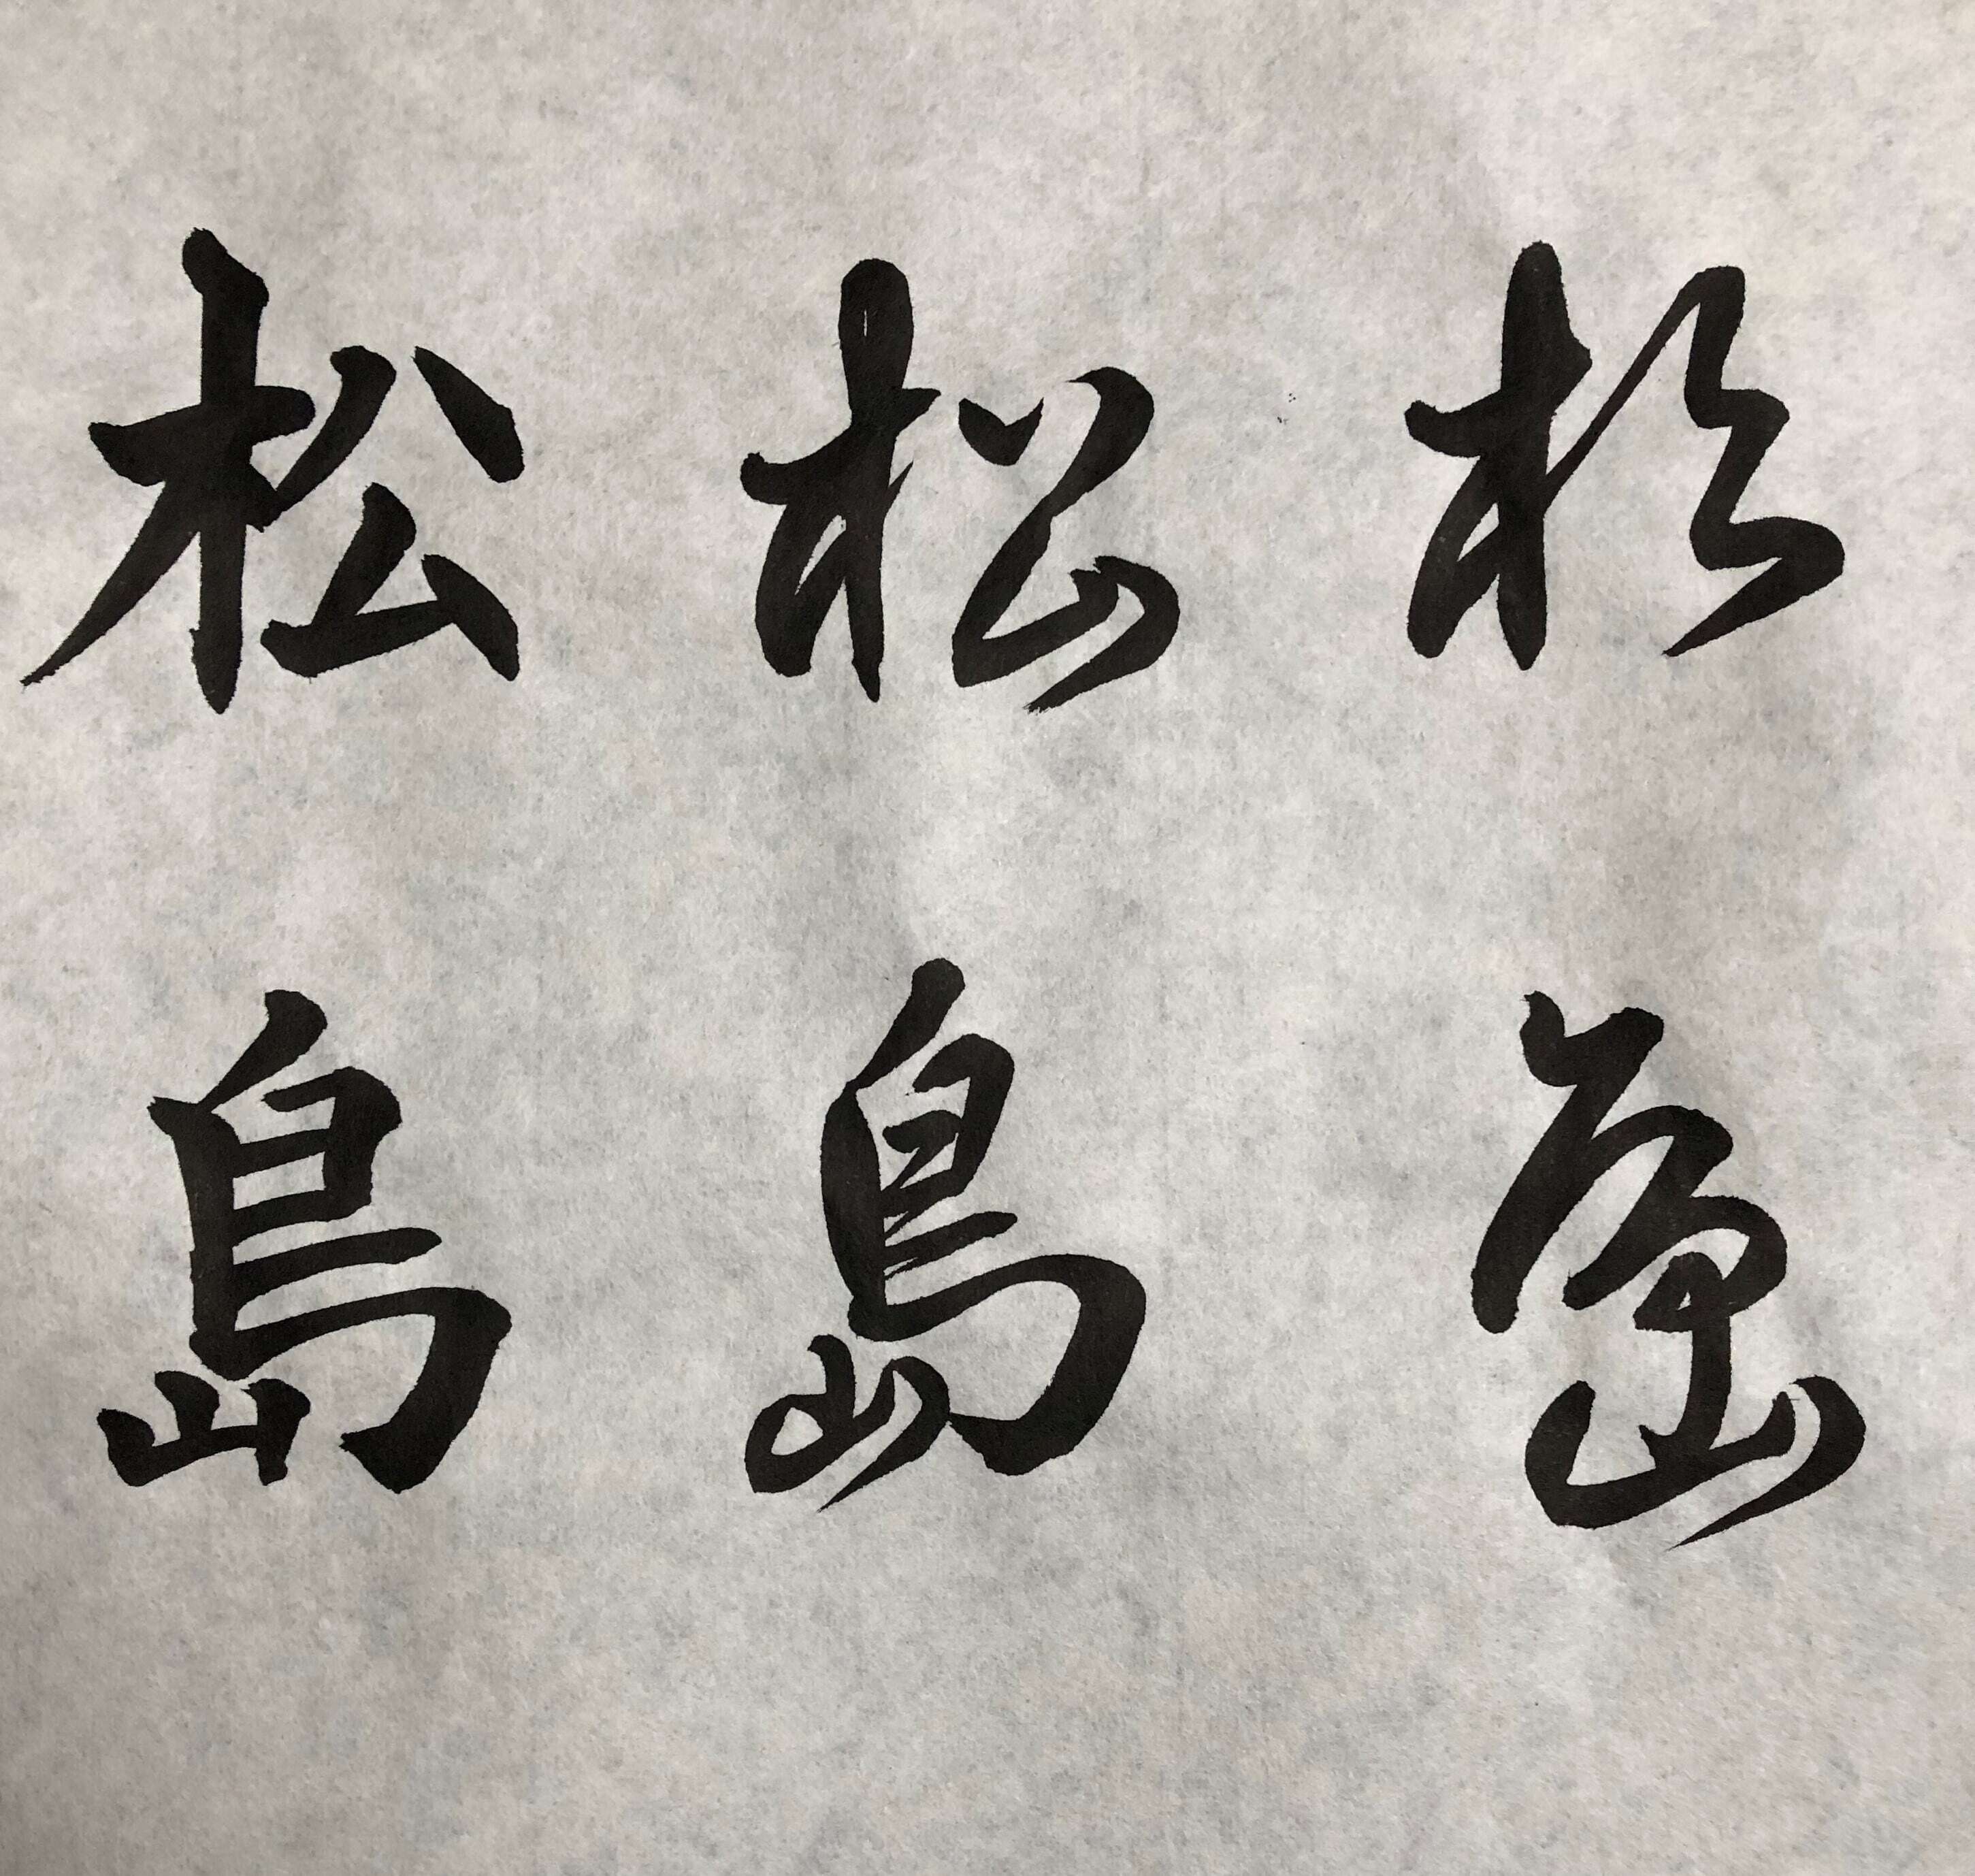 松 松 松
島 島 島